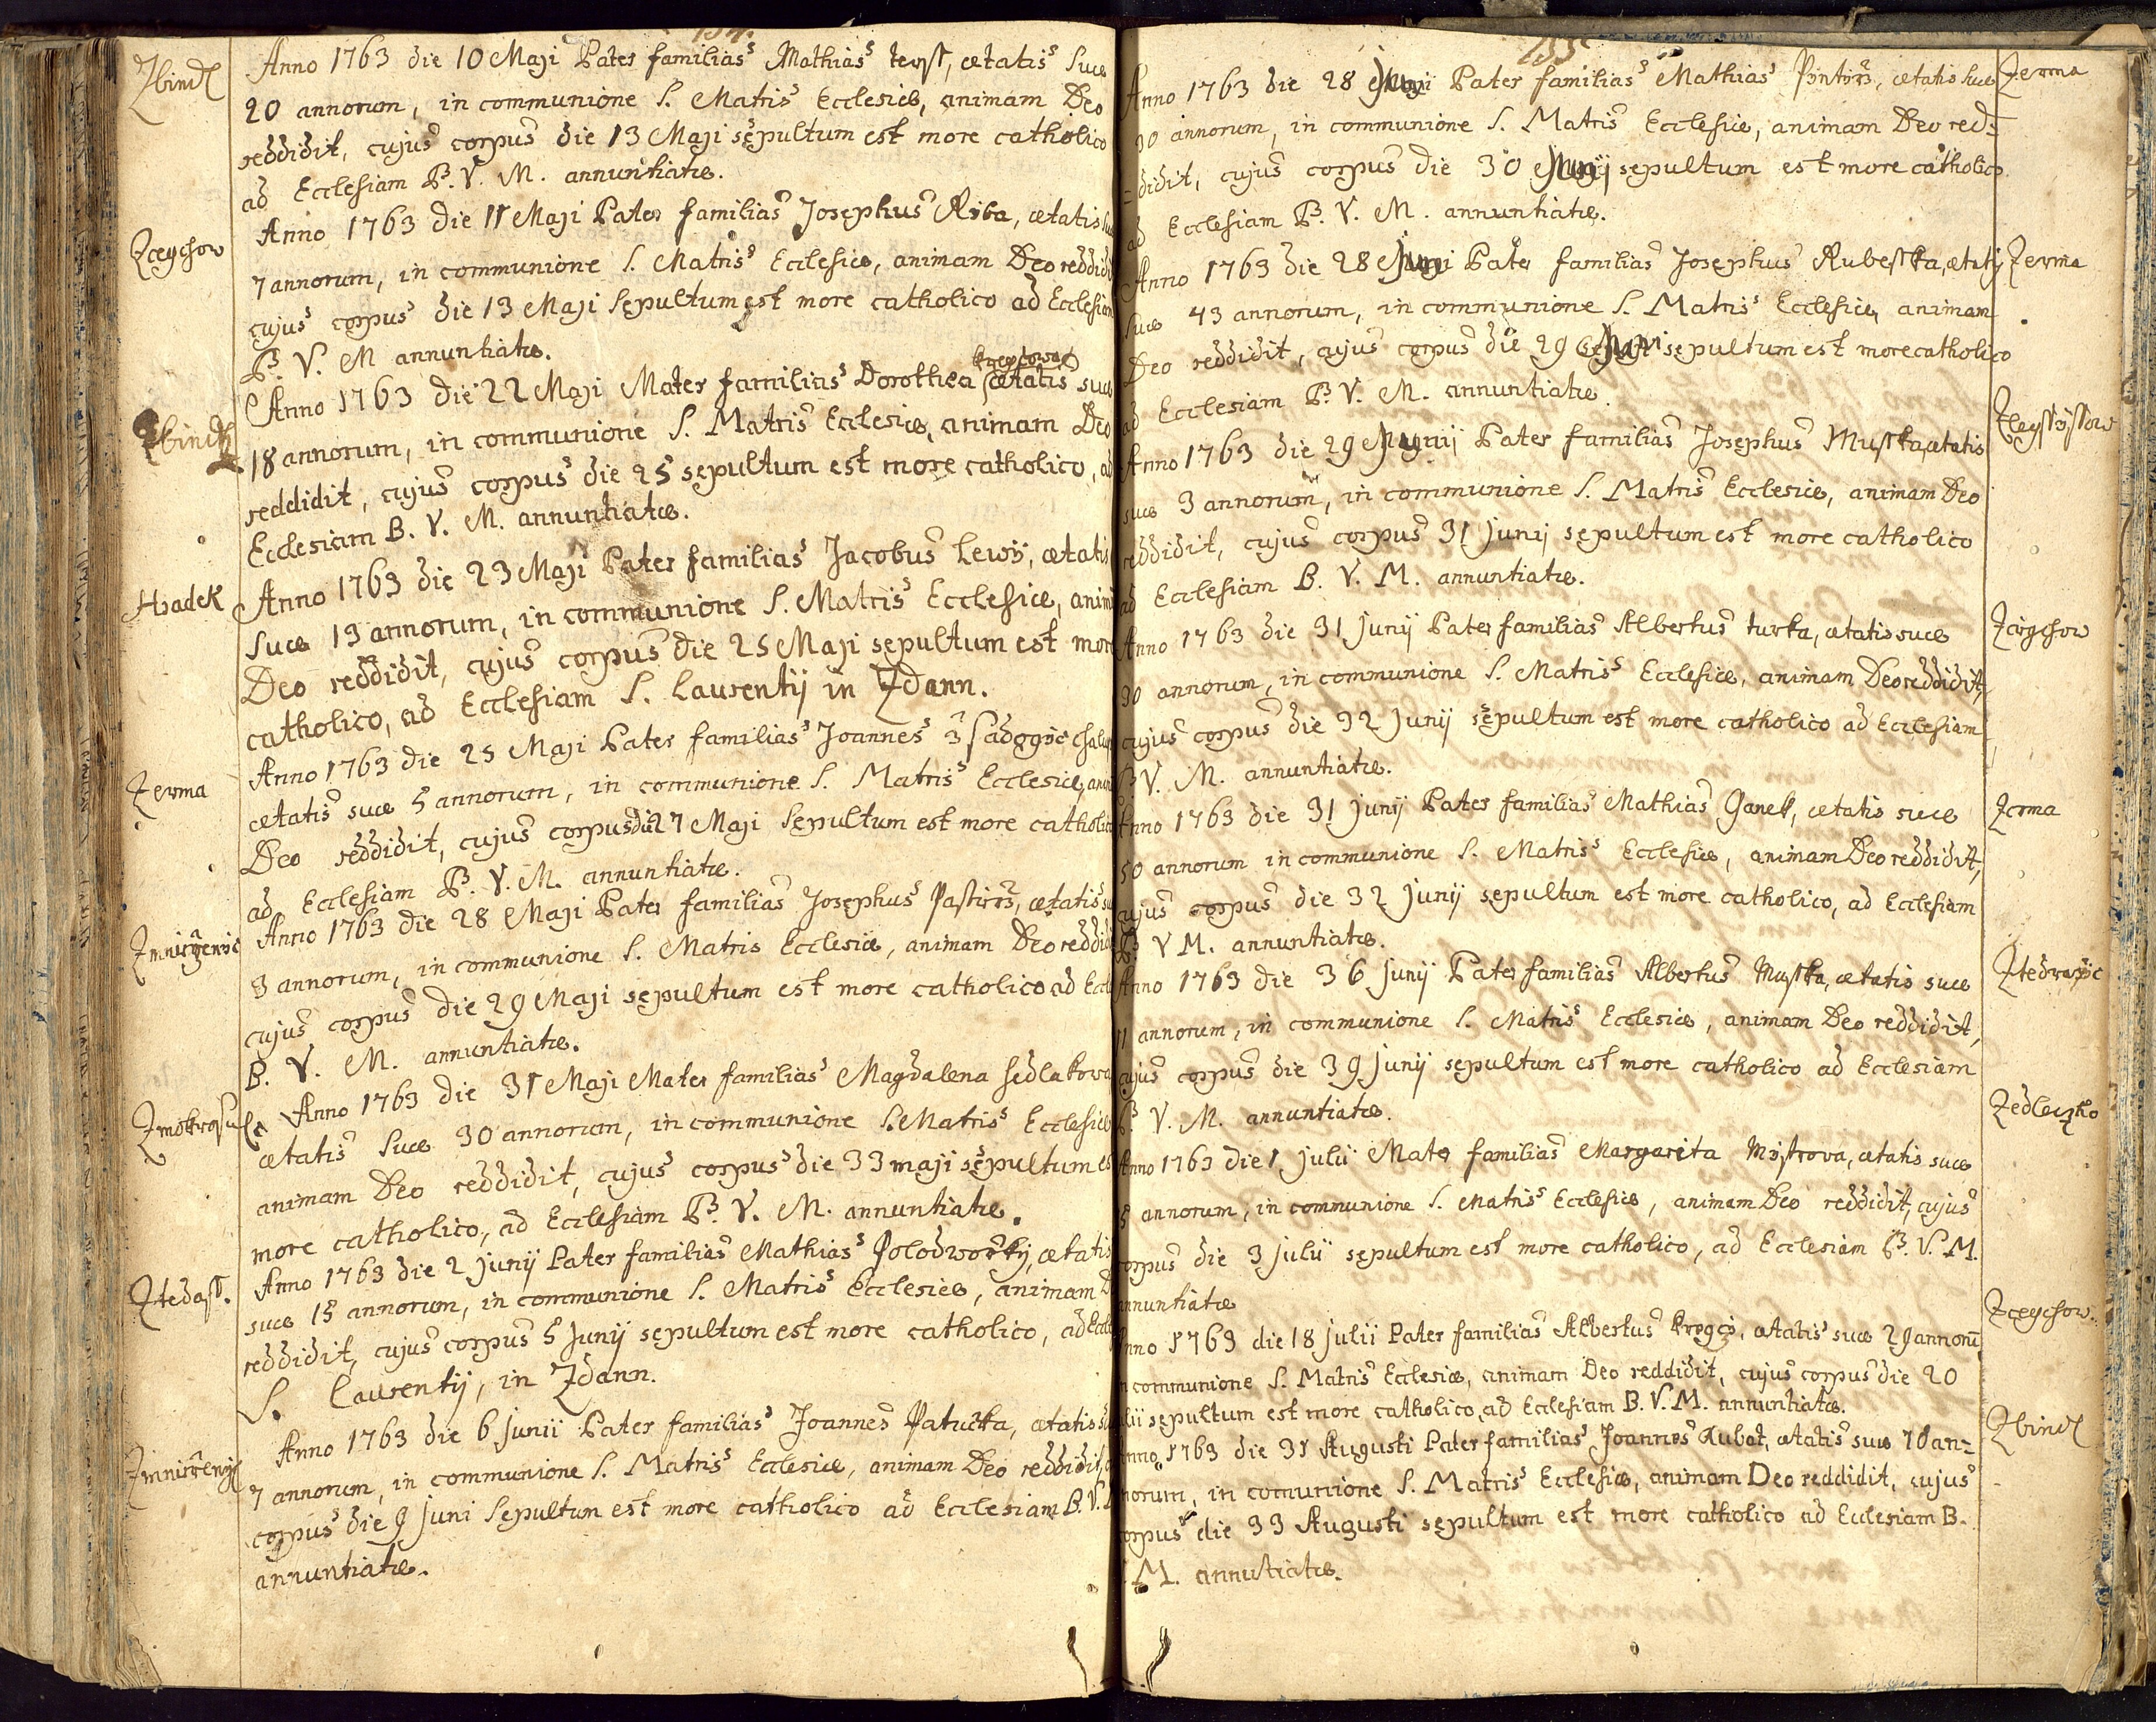 134.
Zbindl
Anno 1763 die 10 Maji Pater familias Mathias terst, ætatis suæ
20 annorum, in communione S. Matris Ecclesiæ, animam Deo
reddidit, cujus corpus die 13 Maji sepultum est more catholico
ad Ecclesiam B. V. M. annuntiatæ.
Zcegchow
Anno 1763 die 11 Maji Pater familias Josephus Riba, ætatis
7 annorum, in communione S. Matris Ecclesiæ, animam Deo reddidi
cujus corpus die 13 Maji Sepultum est more catholico ad Ecclesiam
B. V. M annuntiatæ.
Zbindl
Anno 1763 die 22 Maji Mater familias Dorothea ætatis suæ
18 annorum, in communione S. Matris Ecclesiæ, animam Deo
reddidit, cujus corpus die 25 sepultum est more catholico, ad
Ecclesiam B. V. M. annuntiatæ.
Hradek
Anno 1763 die 23 Maji Pater familias Jacobus Lewÿ, ætatis
suæ 19 annorum, in communione S. Matris Ecclesiæ, anim
Deo reddidit, cujus corpus die 25 Maji sepultum est more
catholico, ad Ecclesiam S. Laurentij in Zdann.
Zerma
Anno 1763 die 25 Maji Pater familias Joannes
ætatis suæ 5 annorum, in communione S. Matris Ecclesiæ, ani
Deo reddidit, cujus corpus die 27 Maji Sepultum est more catholico
ad Ecclesiam B. V. M. annuntiatæ.
Anno 1763 die 28 Maji Pater familias Josephus Pastirz, ætatis
3 annorum, in communione S. Matris Ecclesiæ, animam Deo reddidi
cujus corpus die 29 Maji sepultum est more catholico ad Eccle
B. V. M. annuntiatæ.
Anno 1763 die 31 Maji Mater familias Magdalena Sedlakowa
ætatis suæ 30 annorum, in communione S. Matris Ecclesiæ
animam Deo reddidit, cujus corpus die 33 maji sepultum es
more catholico, ad Ecclesiam B. V. M. annuntiatæ.
Ztedast.
Anno 1763 die 2 junij Pater familias Mathias Polodworskÿ, ætatis
suæ 15 annorum, in communione S. Matris Ecclesiæ, animam D
reddidit, cujus corpus 5 Junij sepultum est more catholico, ad Eccle
S. Laurentij, in Zdann.
Anno 1763 die 6 junii Pater familias Joannes Patucka, ætatis su
7 annorum, in communione S. Matris Ecclesiæ, animam Deo reddidit,
corpus die 9 juni Sepultum est more catholico ad Ecclesiam B. V.
annuntiatæ.
135
Zerma
Anno 1763 die 28 Junii Pater familias Mathias Pintirz, ætatis suæ
30 annorum, in communione S. Matris Ecclesiæ, animam Deo red=
=didit, cujus corpus die 30 Junij sepultum est more catholico
ad Ecclesiam B. V. M. annuntiatæ.
Zerma
Anno 1763 die 28 Juni Pater familias Josephus Rubestka, ætatis
suæ 43 annorum, in communione S. Matris Ecclesiæ, animam
Deo reddidit, cujus corpus die 29 Juni sepultum est more catholico
ad Ecclesiam B. V. M. annuntiatæ.
Anno 1763 die 29 Junij Pater familias Josephus Mustka, ætatis
suæ 3 annorum, in communione S. Matris Ecclesiæ, animam Deo
reddidit, cujus corpus 31 junij sepultum est more catholico
ad Ecclesiam B. V. M. annuntiatæ.
Zcigchow
Anno 1763 die 31 junij Pater familias Albertus turka, ætatis suæ
30 annorum, in communione S. Matris Ecclesiæ, animam Deo reddidit,
cujus corpus die 32 junij sepultum est more catholico ad Ecclesiam
B V. M. annuntiatæ.
Zerma
Anno 1763 die 31 junij Pater familias Mathias Ganek, ætatis suæ
50 annorum in communione S. Matris Ecclesiæ, animam Deo reddidit,
cujus corpus die 32 junij sepultum est more catholico, ad Ecclesiam
B V M. annuntiatæ.
Anno 1763 die 36 junij Pater familias Albertus Mustka, ætatis suæ
11 annorum, in communione S. Matris Ecclesiæ, animam Deo reddidit,
cujus corpus die 39 junij sepultum est more catholico ad Ecclesiam
B. V. M. annuntiatæ.
Zedleczko
Anno 1763 die 1 julii Mater familias Margarita Mistrova, ætatis suæ
5 annorum, in communione S. Matris Ecclesiæ, animam Deo reddidit, cujus
corpus die 3 julii sepultum est more catholico, ad Ecclesiam B. V. M.
annuntiatæ
Zcegchow.
Anno 1763 die 18 julii Pater familias Albertus kregci, ætatis suæ 29 annorū,
in communione S. Matris Ecclesiæ, animam Deo reddidit, cujus corpus die 20
julii sepultum est more catholico, ad Ecclesiam B. V. M. annuntiatæ.
Zbindl
Anno 1763 die 31 Augusti Pater familias Joannes Kubat, ætatis suæ 10 an=
norum, in comunione S. Matris Ecclesiæ, animam Deo reddidit, cujus
corpus die 33 Augusti sepultum est more catholico ad Ecclesiam B.
M. annutiatæ.